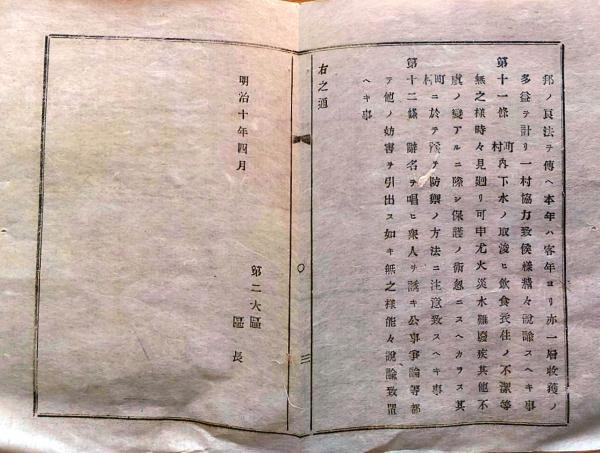 邦ノ良法ヲ傳ヘ本年ハ客年ヨリ亦一層收獲ノ
多益ヲ計リ一村協力致候樣精々說諭スヘキ事
第十一條 町村內下水ノ取浚ヒ飮食衣住ノ不潔等
無之樣時々見廻リ可申尤火災水難廢疾其他不
虞ノ變アルニ際シ保護ノ術怠ニスヘカラス其
町村ニ於テ豫テ防禦ノ方法ニ注意致スヘキ事
第十二條 辭名ヲ唱ヒ衆人ヲ誘キ公事爭論等都
テ他ノ妨害ヲ引出ス如キ無之樣能々說諭致置
ヘキ事
右之通
明治十年四月
第二大區
區長
三